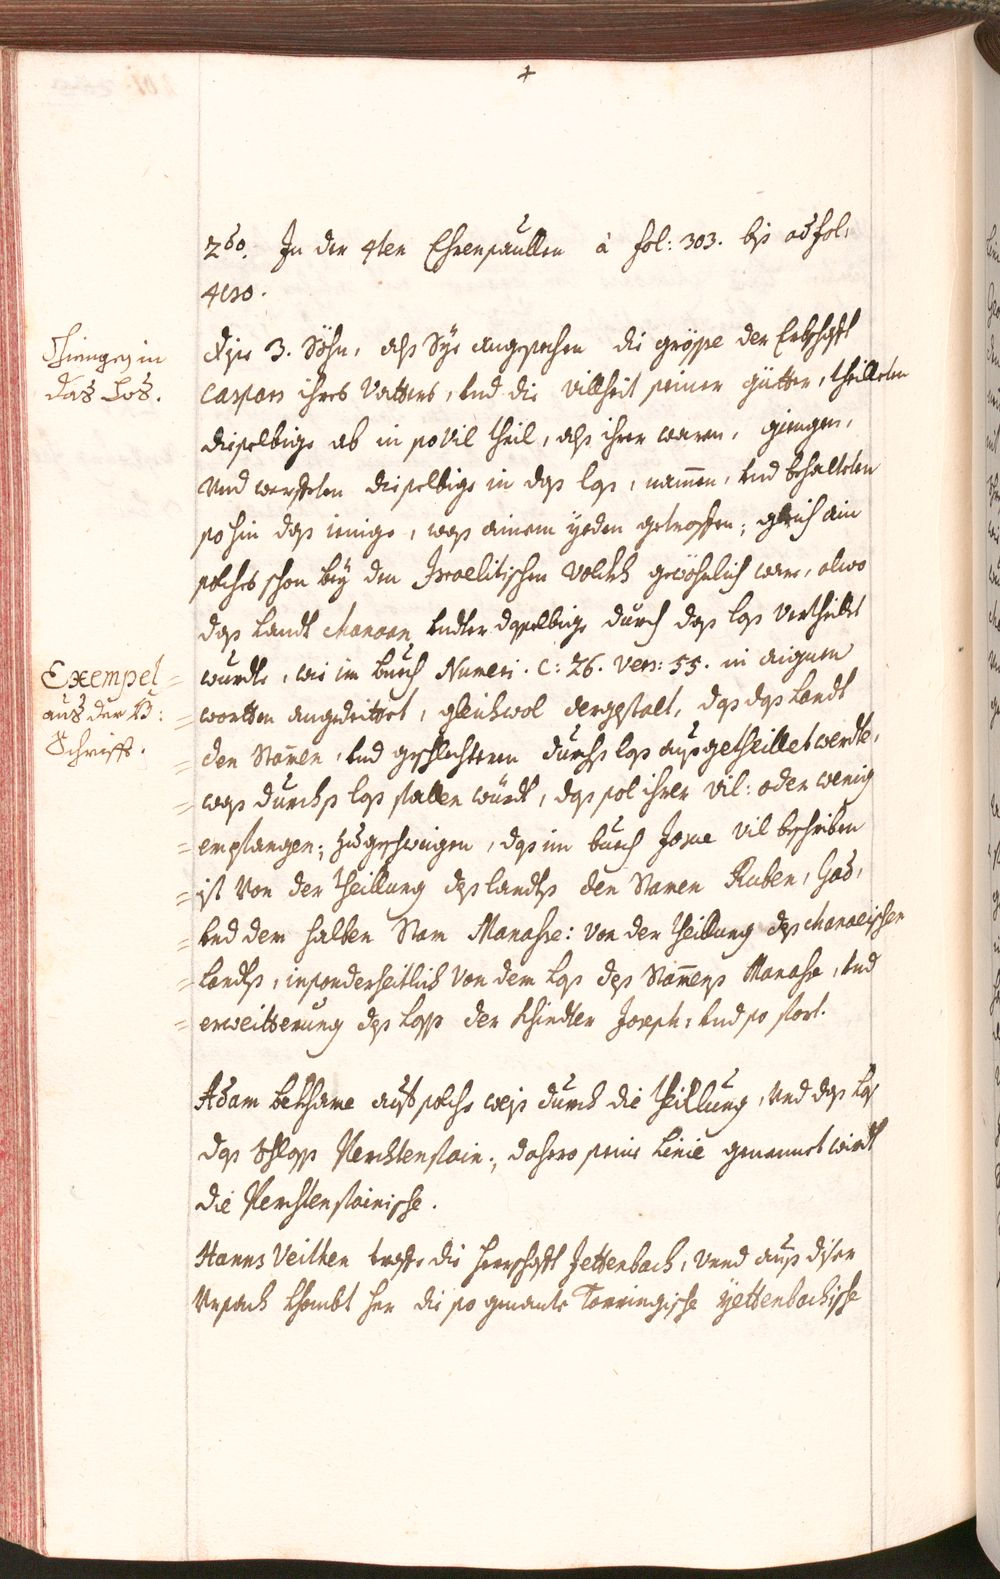 +
2do. In der 4ten Ehrensaullen à fol: 303. bis ad fol:
410.
Thiengen in
das Los.
Dise 3. Söhn, als Sye angesechen die grösse der Erbschafft
Caspars ihres Vatters, und die villheit seiner gütter, theilleten
dieselbige ab in so vil theil, als ihrer waren, giengen,
Und werffeten dieselbige in das Los, namen, und behalteten
so hin das ienige, was ainem yeden getroffen; gleich ain
solches schon bey dem Israelitischen Volckh gewöhnlich ware, alwo
das Landt Chanaan under dasselbige durch das Los Vertheilet
Exempel
aus der H:
Schrifft.
wurdte, wie im buech Numeri. C: 26. Vers: 55. in aignen
wortten angedeittet, gleichwol dergestalt, das das Landt
den Stamen, und geschlechteren durchs Los ausgetheillet werdte,
was durchs Los fallen würdt, das sol ihrer vil: oder wenig
empfangen; zu geschweigen, das im buech Josue vil beschriben
ist Von der theillung des Landts den Stamen Ruben, Gad,
und dem halben Stam Manasse: Von der theillung des Chanaeischen
Landts, insonderheitlich Von dem Los des Stamens Manasse, und
erweitterung des Loss der Khindter Joseph, und so fort.
Adam bekhame auf solche weis durch die theillung, Und das Los
das Schloss Perchtenstain; dahero seine Linie genennet wirdt
die Perchtenstainische.
Hanns Veithen traffe die Herrschafft Jettenbach, Unnd auss diser
Ursach khombt her die so genante Törringische Yettenbachische